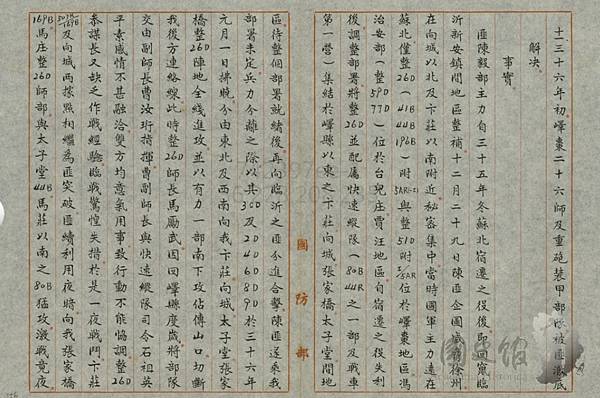 十一.三十六年初嶧棗二十六師及重砲裝甲部隊被匪澈底
解決.
事實
匪陳毅部主力自三十五年冬蘇北宿遷之役後即回竄臨
沂新安鎮間地區整補十二月二十九日陳匪企圖威脅徐州
在向城以北及卞莊以南附近秘密集中當時國軍主力遠在
蘇北僅整26D(41B 44B 196B)附5AR(-2)與整51D附I/5AR位於嶧棗地區馮
治安部(整59D 77D)位於台兒莊賈汪地區自宿遷之役失利
後調整部署將整26D並配屬快速縱隊(80B 4AR之一部及戰車
第一營)集結於嶧縣以東之卞莊向城張家橋太子堂間地
區待整個部署就緒後再向臨沂之匪分進合擊陳匪遂乘我
部署未定兵力分離之際以共 及2D 4D 6D 8D 9D於三十六年
元月一日拂曉分由東北及西南向我卞莊向城太子堂張家
橋整26D陣地全綫進攻並以有力一部南下攻佔傅山口切斷
我後方連絡線此時整26D師長馬勵武因回嶧縣度歲將部隊
交由副師長曹汝珩指揮曹副師長與快速縱隊司令石祖英
平素感情不甚融洽雙方均意氣用事致行動不能協調整26D
參謀長又缺乏作戰經驗臨戰驚惶失措於是一夜戰鬥卞莊
169B 及向城 兩據點相繼為匪突破匪續利用夜暗向我張家橋
169B馬庄整26D師部與太子堂44B馬莊以南之80B猛攻激戰竟夜
國防部